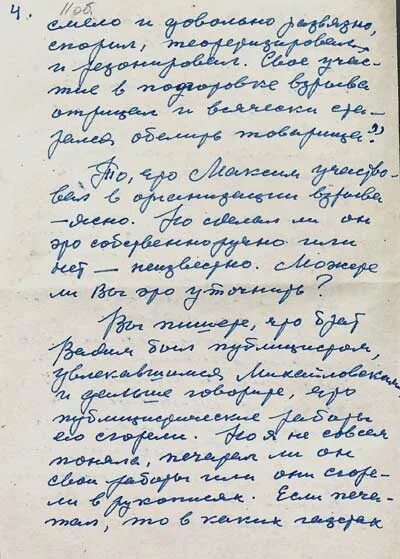 4. 11 об.
смело и довольно развязно,
спорил, теоретизировал
и резонировал. Свое учас-
тие в подготовке взрыва
отрицал и всячески ста-
рался обелить товарища."
То, что Максим участво-
вал в организации взрыва
— ясно. Но сделал ли он
это собственноручно или
нет — неизвестно. Можете
ли Вы это уточнить?
Вы пишете, что брат
Вадим был публицистом,
увлекавшимся Михайловским
и дальше говорите, что
публицистические работы
его сгорели. Но я не совсем
поняла, печатал ли он
свои работы или они сгоре-
ли в рукописях. Если печа-
тал, то в каких газетах